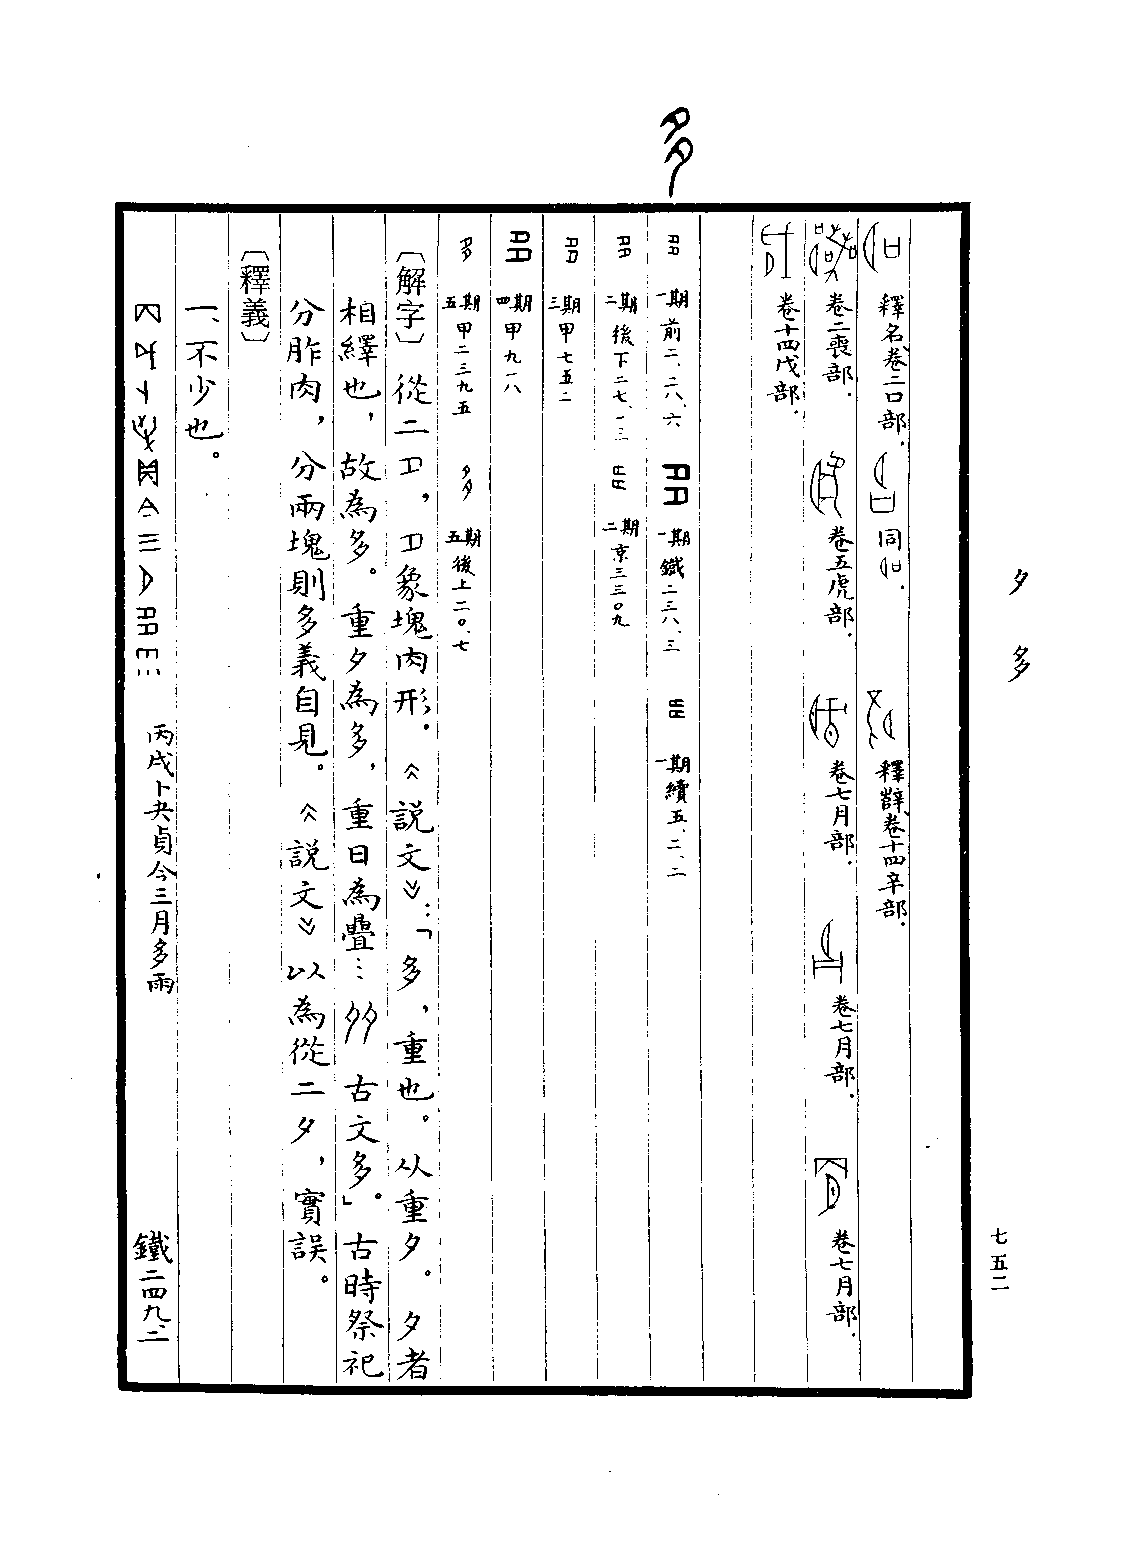 夕 多
七五二
多
釋名卷二口部． 同． 釋辭卷十四辛部．
卷二喪部． 卷五虎部． 卷七月部． 卷七月部． 卷七月部．
卷十四戊部．
一期前二、二八、六 一期鐵二三八、三 一期續五、二、二
二期後下二七、一三 二期京三三〇九
三期甲七五二
四期甲九一八
五期甲二三九五 五期後上二〇、七
〔解字〕從二，象塊肉形．《說文》：「多，重也。从重夕。夕者
相繹也，故為多。重夕為多，重日為疊…古文多。」古時祭祀
分胙肉，分兩塊則多義自見。《說文》以為從二夕，實誤。
〔釋義〕
一、不少也。
丙戌卜夬貞今三月多雨 鐵二四九、二